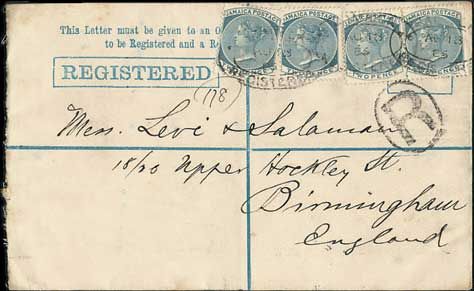 This Letter must be given to an O
to be Registered and a R
REGISTERED
JAMAICA POSTAGE JAMAICA POSTAGE JAMAICA POSTAGE JAMAICA POSTAGE
TWO PENCE
REGISTERED
(178)
R
Mess. Levi & Salaman
18/20 Upper Hockley St.
Birmingham
England